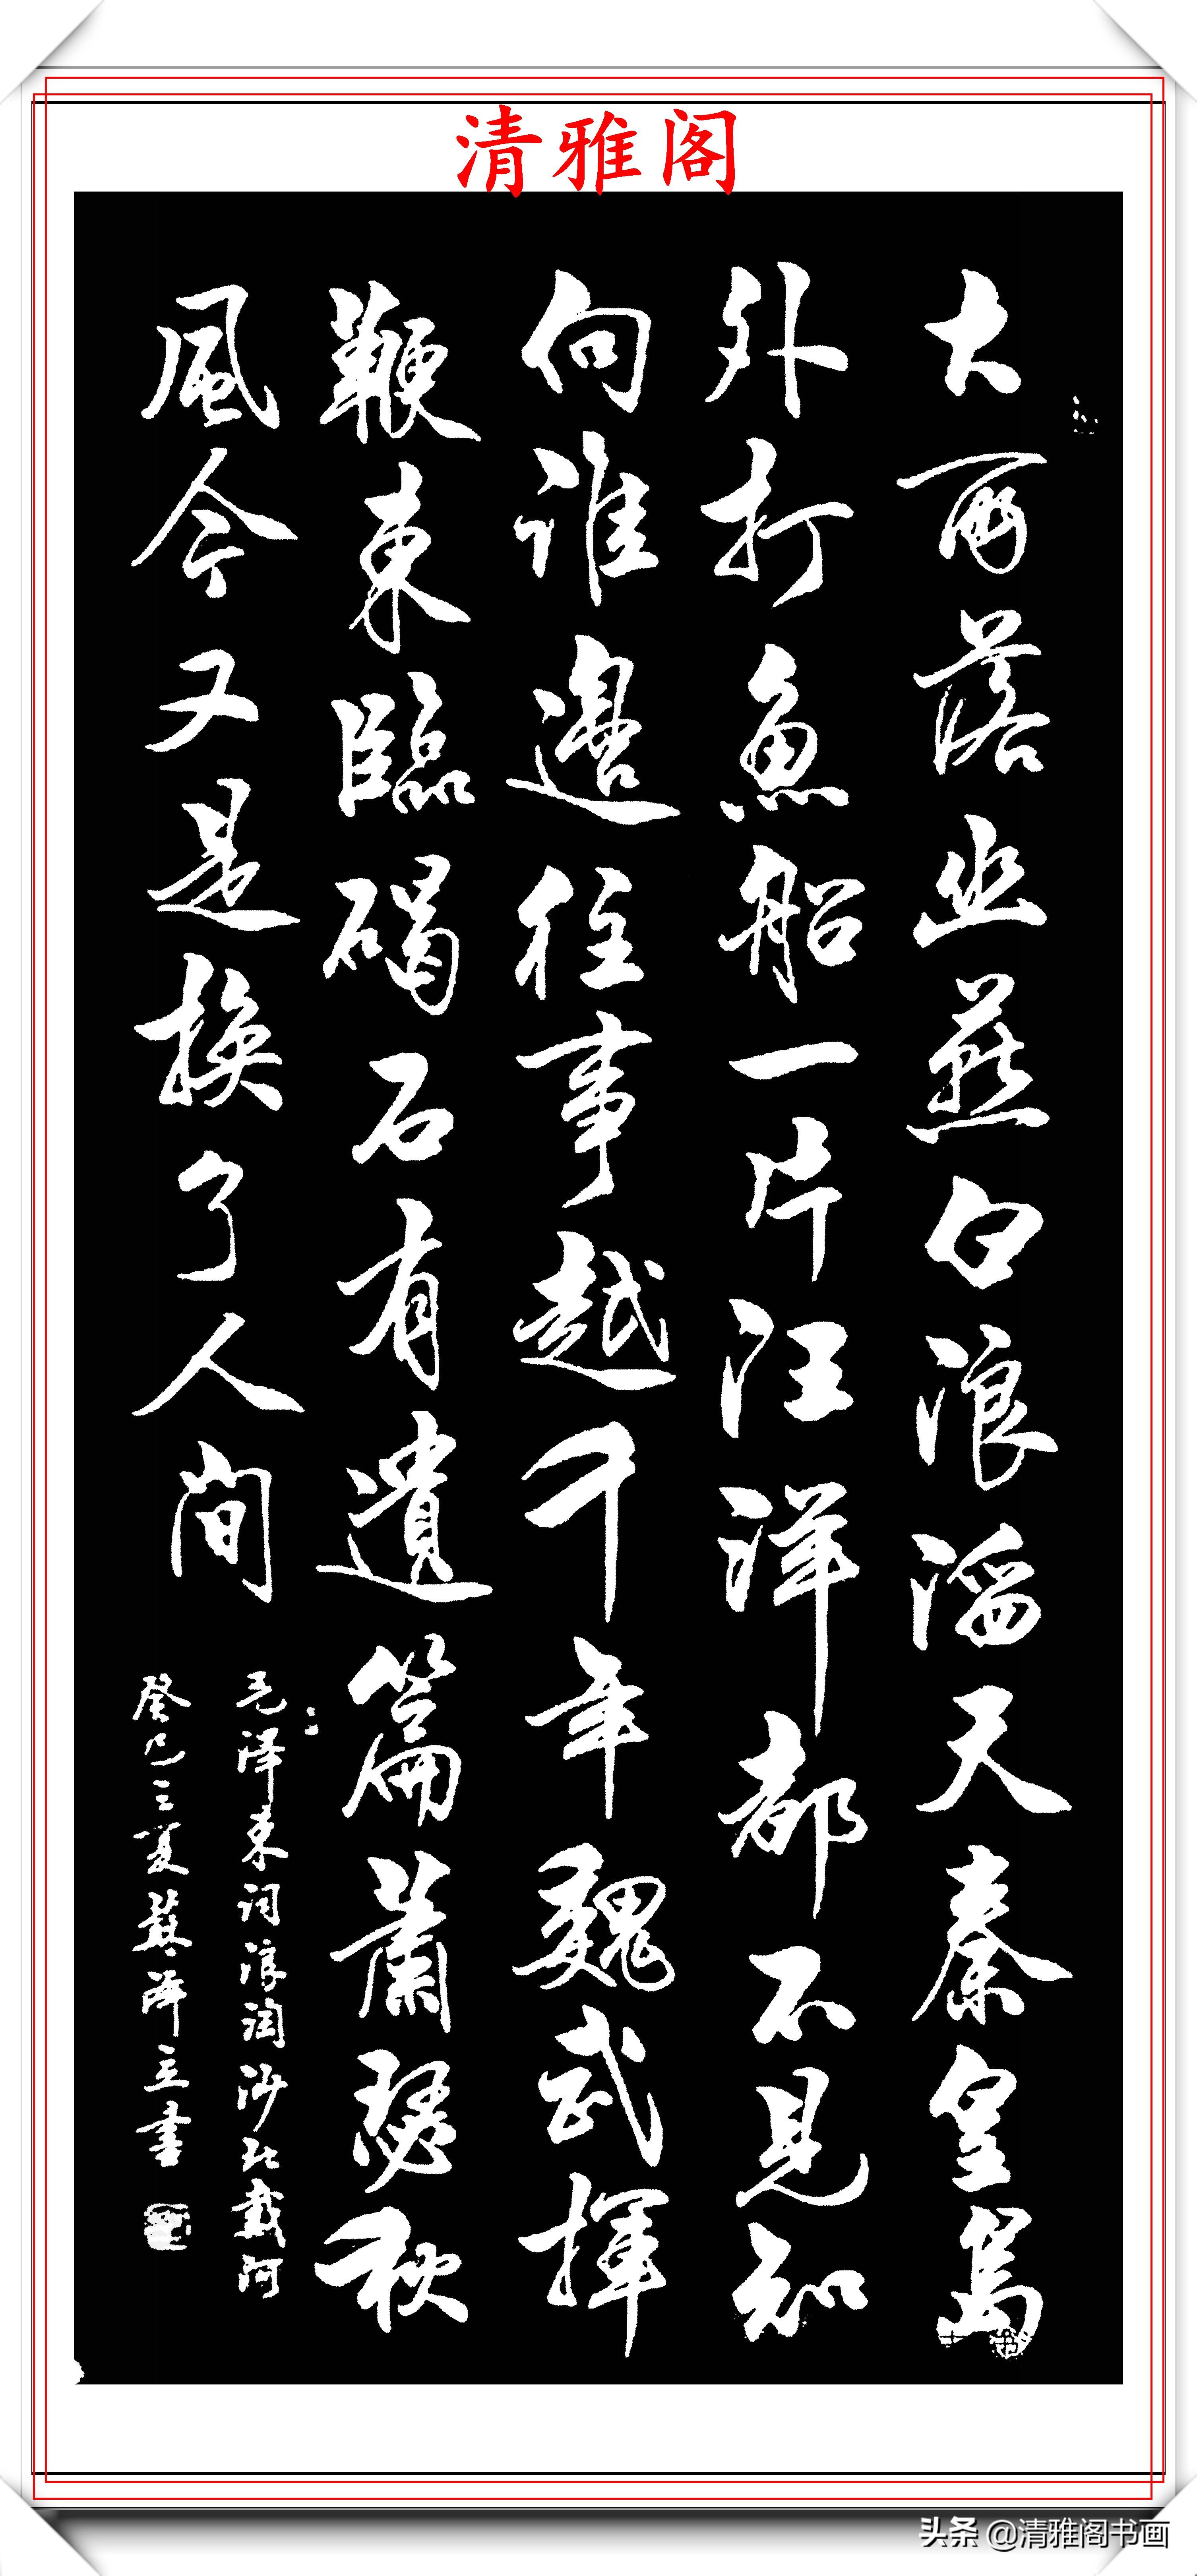 清雅阁
大雨落幽燕白浪滔天秦皇島
外打魚船一片汪洋都不見知
向誰邊往事越千年魏武揮
鞭東臨碣石有遺篇蕭瑟秋
風今又是換了人间
毛泽东词浪淘沙北戴河
癸巳之夏蘇泽立書
头条 @清雅阁书画